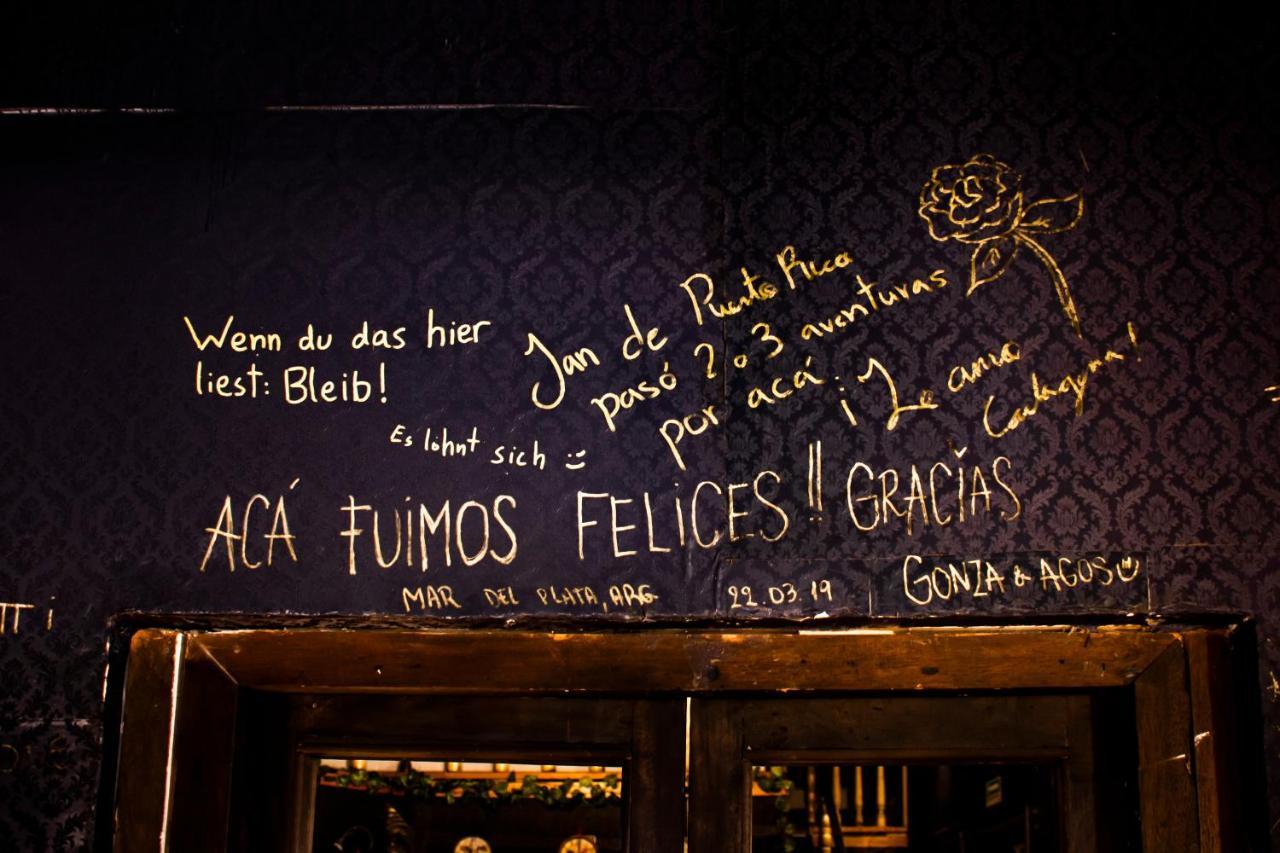 Wenn du das hier
liest: Bleib!
Es lohnt sich :)
Jan de Puerto Rico
pasó 2 o 3 aventuras
por acá. ¡Le amo
Cartagena!
ACÁ FUIMOS FELICES!! GRACIAS
MAR DEL PLATA, ARG. 22.03.19 GONZA & AGOS